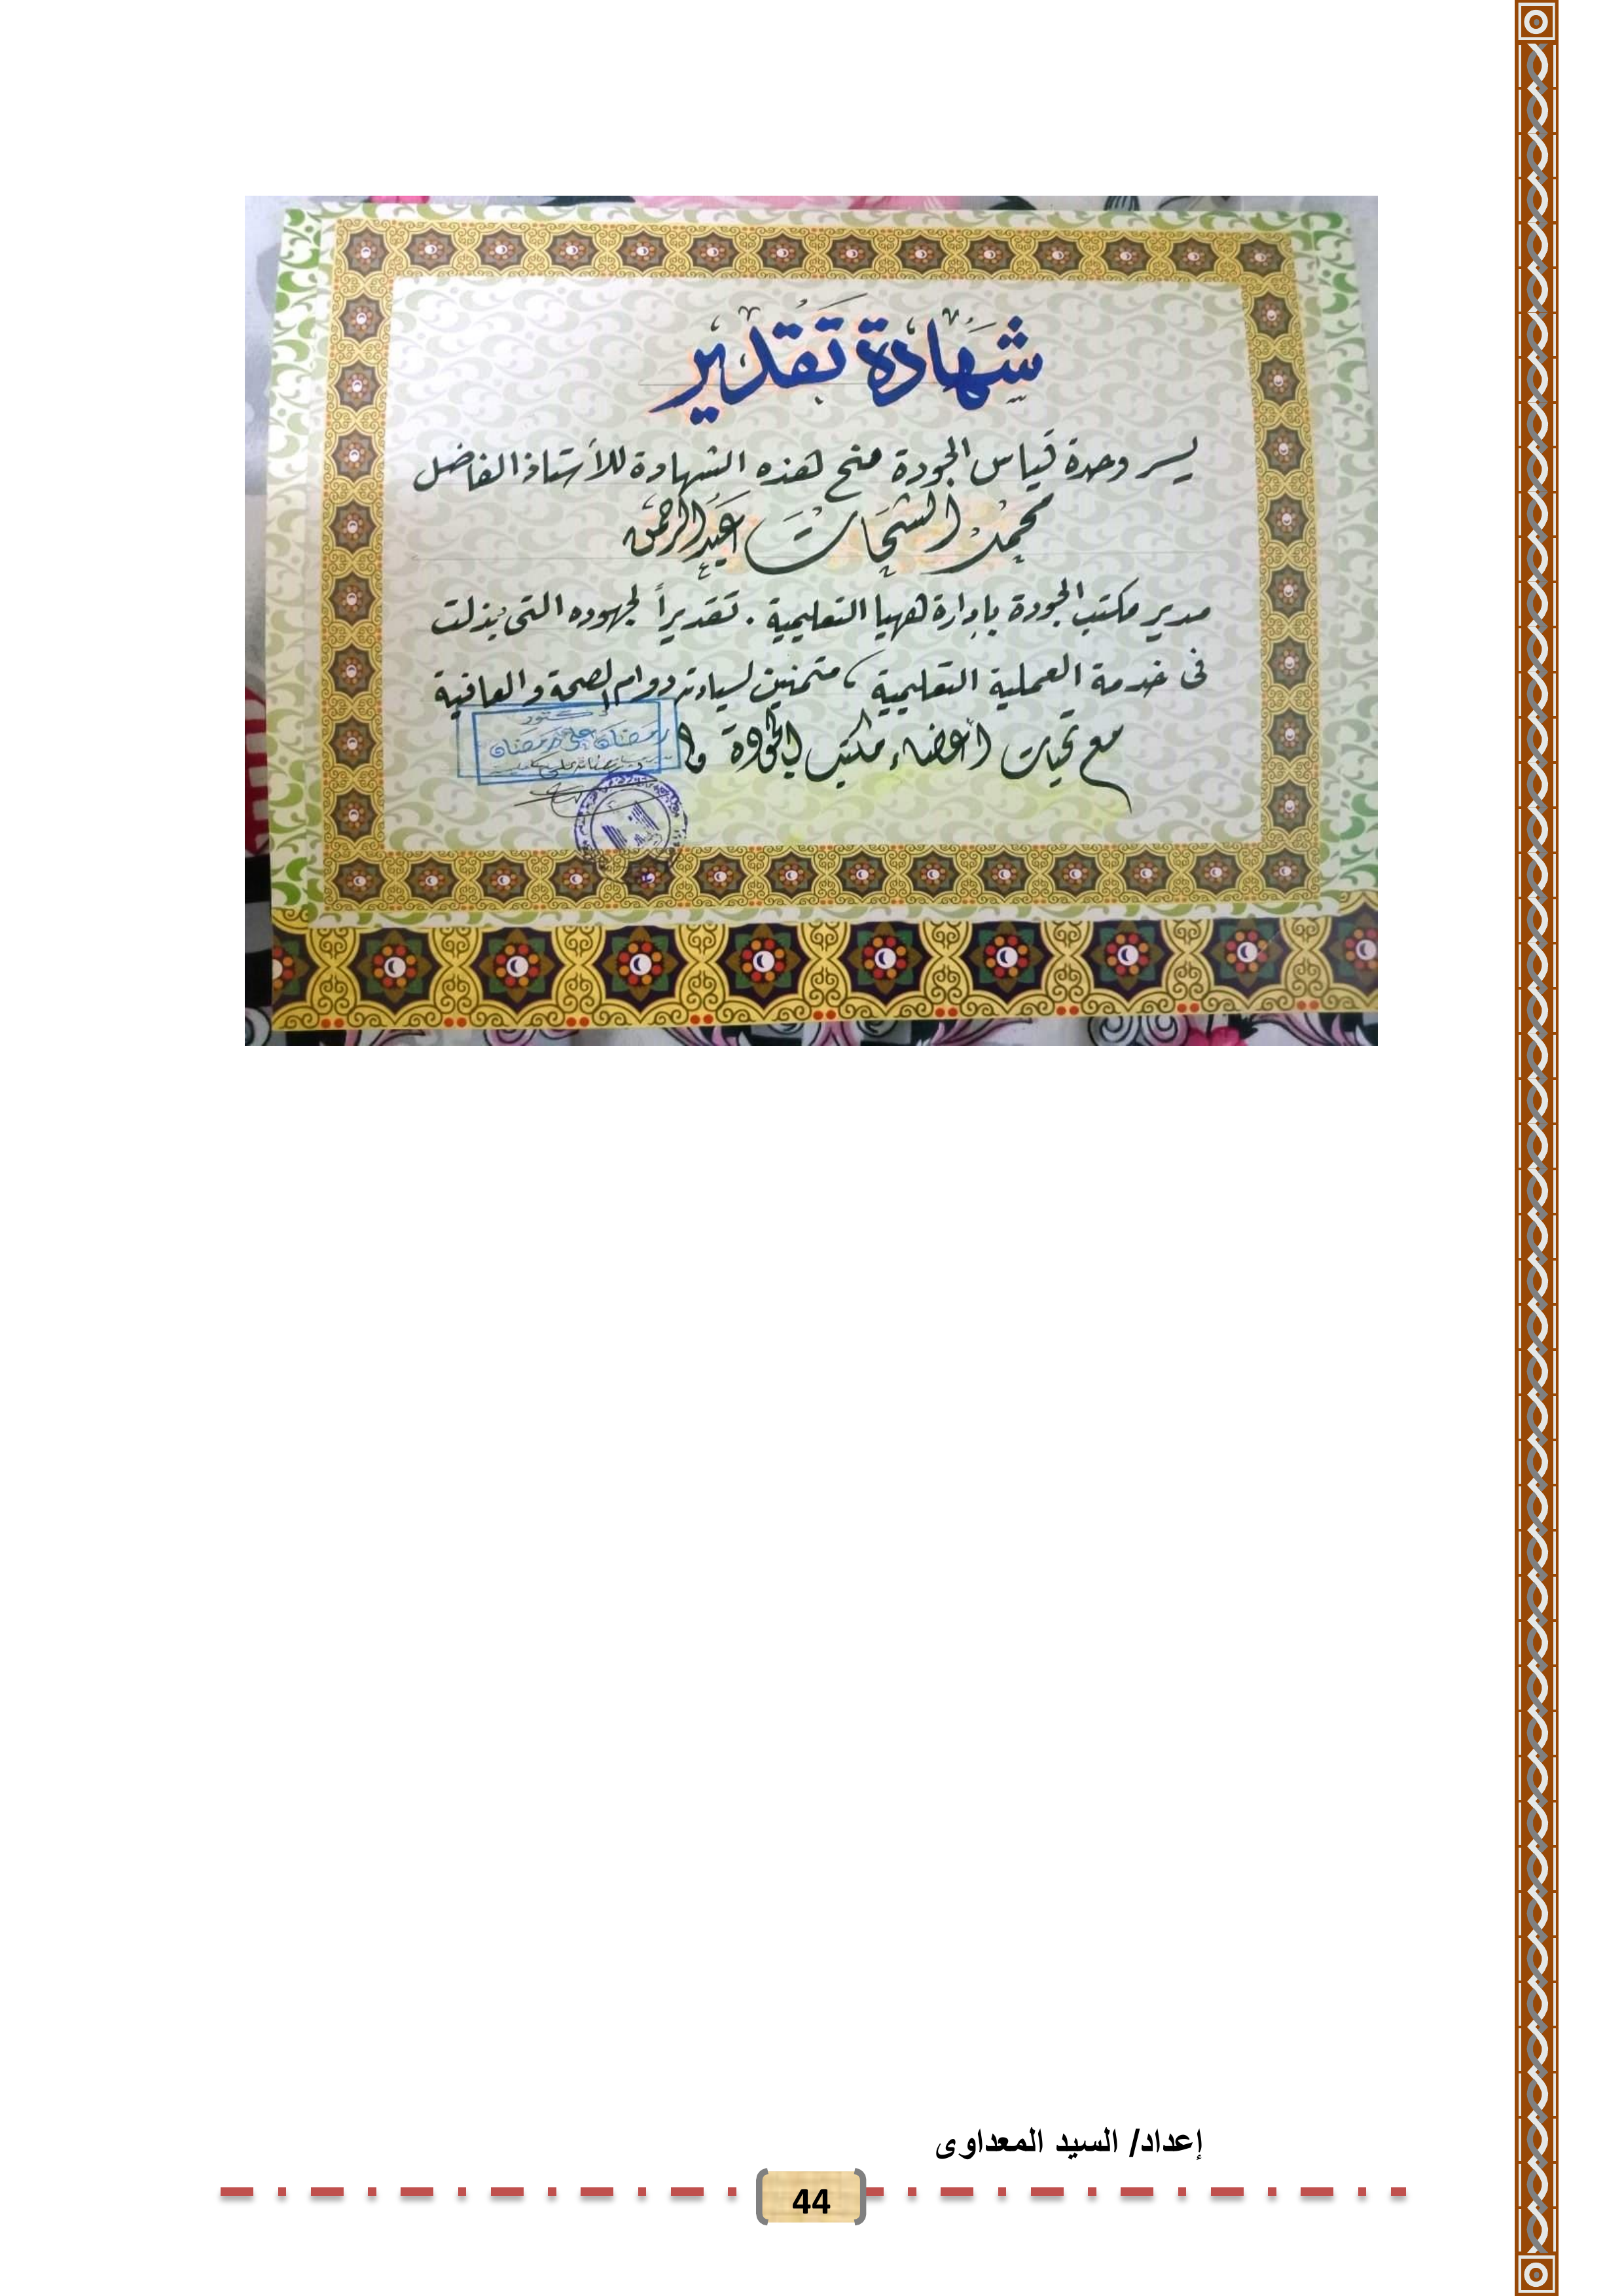 شهادة تقدير
يسر وحدة قياس الجودة منح هذه الشهادة للأستاذ الفاضل
محمد الشحات عبد الرحمن
مدير مكتب الجودة بإدارة ههيا التعليمية . تقديراً لجهوده التى بذلت
فى خدمة العملية التعليمية ، متمنين لسيادته دوام الصحة والعافية
مع تحيات أعضاء مكتب الجودة
دكتور
رمضان على رمضان
إعداد/ السيد المعداوى
44